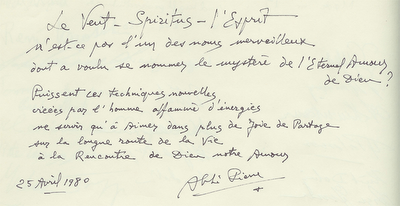 Le Vent - Spiritus - l'Esprit
n'est-ce pas l'un des noms merveilleux
dont a voulu se nommer le mystère de l'Eternel Amour
de Dieu ?
Puissent ces techniques nouvelles
créées par l'homme affamé d'énergies
ne servir qu'à Aimer dans plus de Joie de Partage
sur la longue route de la Vie
à la Rencontre de Dieu notre Amour
25 Avril 1980
Abbé Pierre